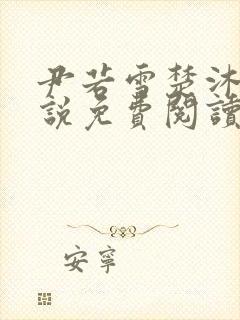 尹若雪楚沐
說免費閱讀
安寧